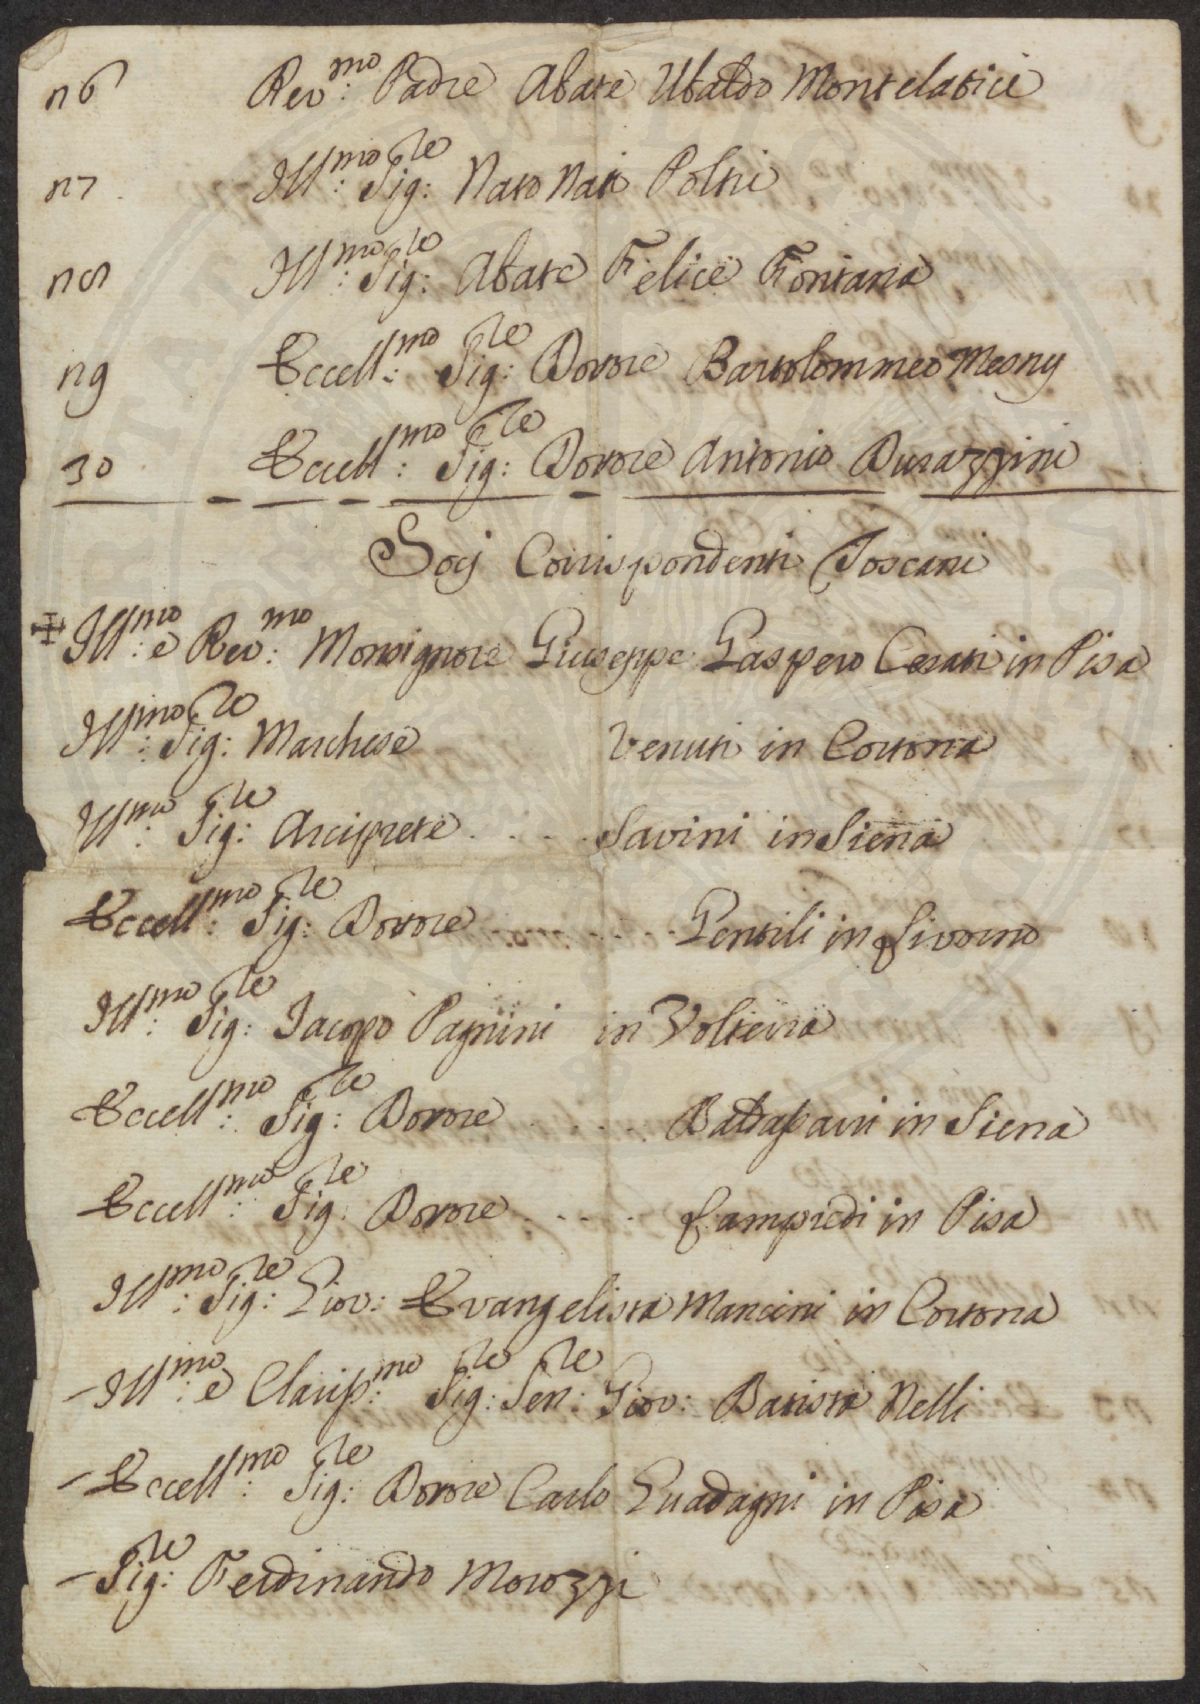 26 Rev:mo Padre Abate Ubaldo Montelatici
27 Ill:mo Sig:re Nato Nati Poltri
28 Ill:mo Sig:re Abate Felice Fontana
29 Eccell:mo Sig:re Dottore Bartolommeo Mesny
30 Eccell:mo Sig:re Dottore Antonio Durazzini
Socj Corrispondenti Toscani
Ill:mo e Rev:mo Monsignore Giuseppe Gaspero Cerati in Pisa
Ill:mo Sig:re Marchese Venuti in Cortona
Ill:mo Sig:re Arciprete . . . . Savini in Siena
Eccell:mo Sig:re Dottore . . . . Gentili in Livorno
Ill:mo Sig:re Jacopo Pagnini in Volterra
Eccell:mo Sig:re Dottore . . . . in Siena
Eccell:mo Sig:re Dottore . . . . Lampredi in Pisa
Ill:mo Sig:re Giov: Evangelista Mancini in Cortona
Ill:mo e Claris:mo Sig:re Sen:re Giov: Batista Nelli
Eccell:mo Sig:re Dottore Carlo Guadagni in Pisa
Sig:re Ferdinando Morozzi